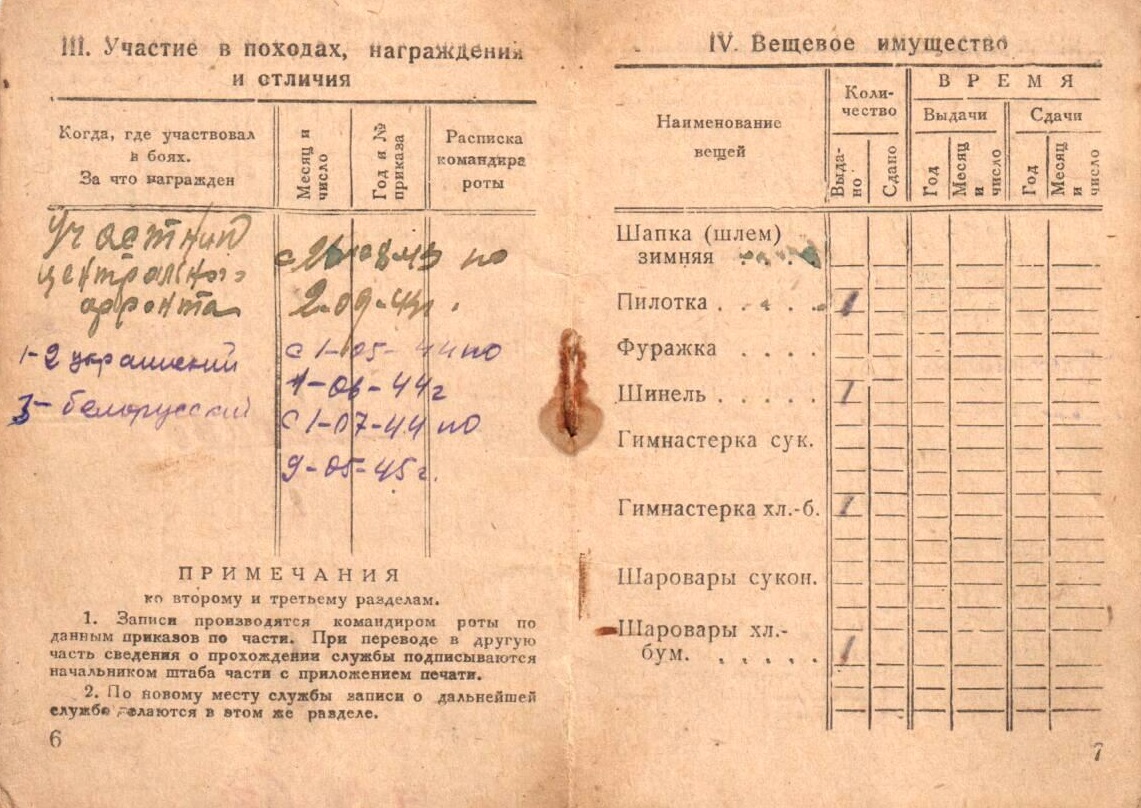 III. Участие в походах, награждения
и отличия
Когда, где участвовал
в боях.
За что награжден
Месяц и
число
Год и №
приказа
Расписка
командира
роты
Участник
центрального
фронта
с 26-08-43 по
2-09-43г.
1-2 украинский
с 1-05-44 по
1-06-44г
3-белорусский
с 1-07-44 по
9-05-45г.
ПРИМЕЧАНИЯ
ко второму и третьему разделам.
1. Записи производятся командиром роты по
данным приказов по части. При переводе в другую
часть сведения о прохождении службы подписываются
начальником штаба части с приложением печати.
2. По новому месту службы записи о дальнейшей
службе делаются в этом же разделе.
6
IV. Вещевое имущество
Наименование
вещей
Коли-
чество
ВРЕМЯ
Выдачи
Сдачи
Выда-
но
Сдано
Год
Месяц
и
число
Год
Месяц
и
число
Шапка (шлем)
зимняя . . . .
Пилотка . . . . . 1
Фуражка . . . .
Шинель . . . . . 1
Гимнастерка сук.
Гимнастерка хл.-б. 1
Шаровары сукон.
Шаровары хл.-
бум. . . . . . 1
7